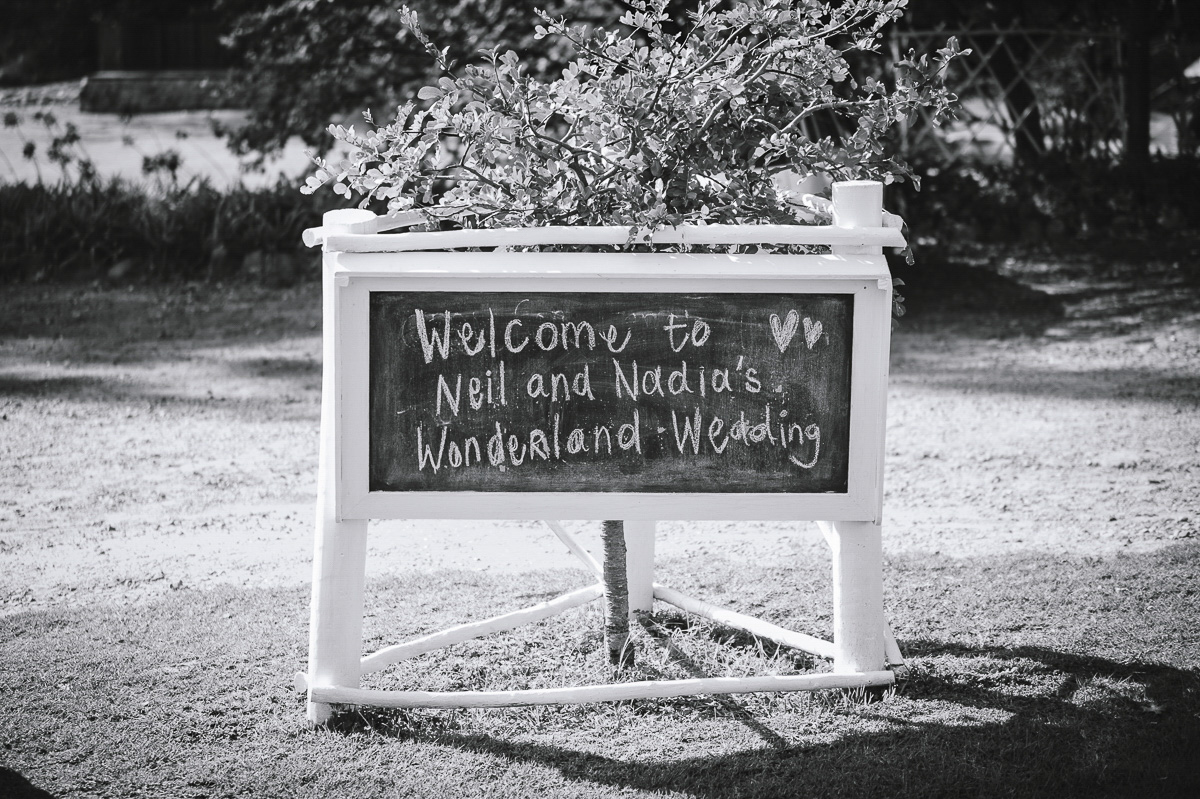 Welcome to
Neil and Nadia's
Wonderland Wedding